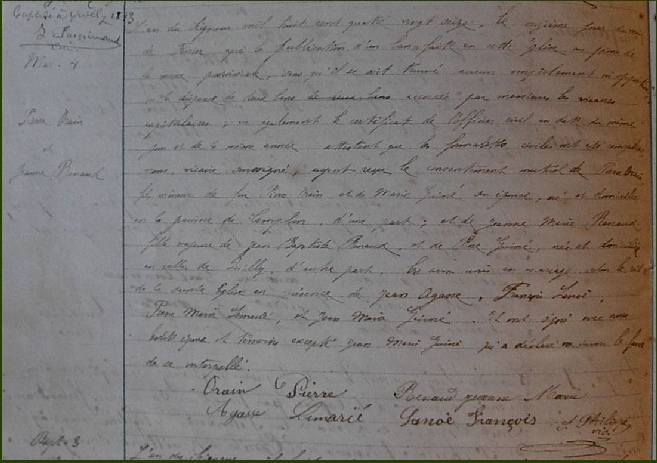 Mar. 4
Pierre Orain
et
Jeanne Renaud
L'an du Seigneur mil huit cent quatre vingt onze, le onzième jour du mois
de Février, après la publication d'un ban faite en cette Église au prône de
la messe paroissiale, sans qu'il se soit trouvé aucun empêchement ni opposition
vu la dispense de deux bans accordée par messieurs les vicaires
capitulaires ; vu également le certificat de l'officier civil en date du même
jour et de la même année attestant que les formalités civiles ont été
nous, vicaire soussigné, ayant reçu le consentement mutuel de Pierre Orain
fils mineur de feu Pierre Orain et de Marie Guiné son épouse, né et domicilié
en la paroisse de , d'une part ; et de Jeanne Marie Renaud
fille majeure de Jean Baptiste Renaud, et de Guiné, née et domiciliée
en celle de , d'autre part, les avons unis en mariage selon le rit
de la sainte Église en présence de Jean Agasse, François Lanoë,
Pierre Marie Limarié, et Jean Marie Guiné. Et ont signé avec nous
époux et témoins excepté Jean Marie Guiné qui a déclaré ne savoir le faire
de ce interpellé.
Orain Pierre Renaud jeanne Marie
Agasse Limarié Lanoë François
Bapt. 3
L'an du Seigneur mil huit cent